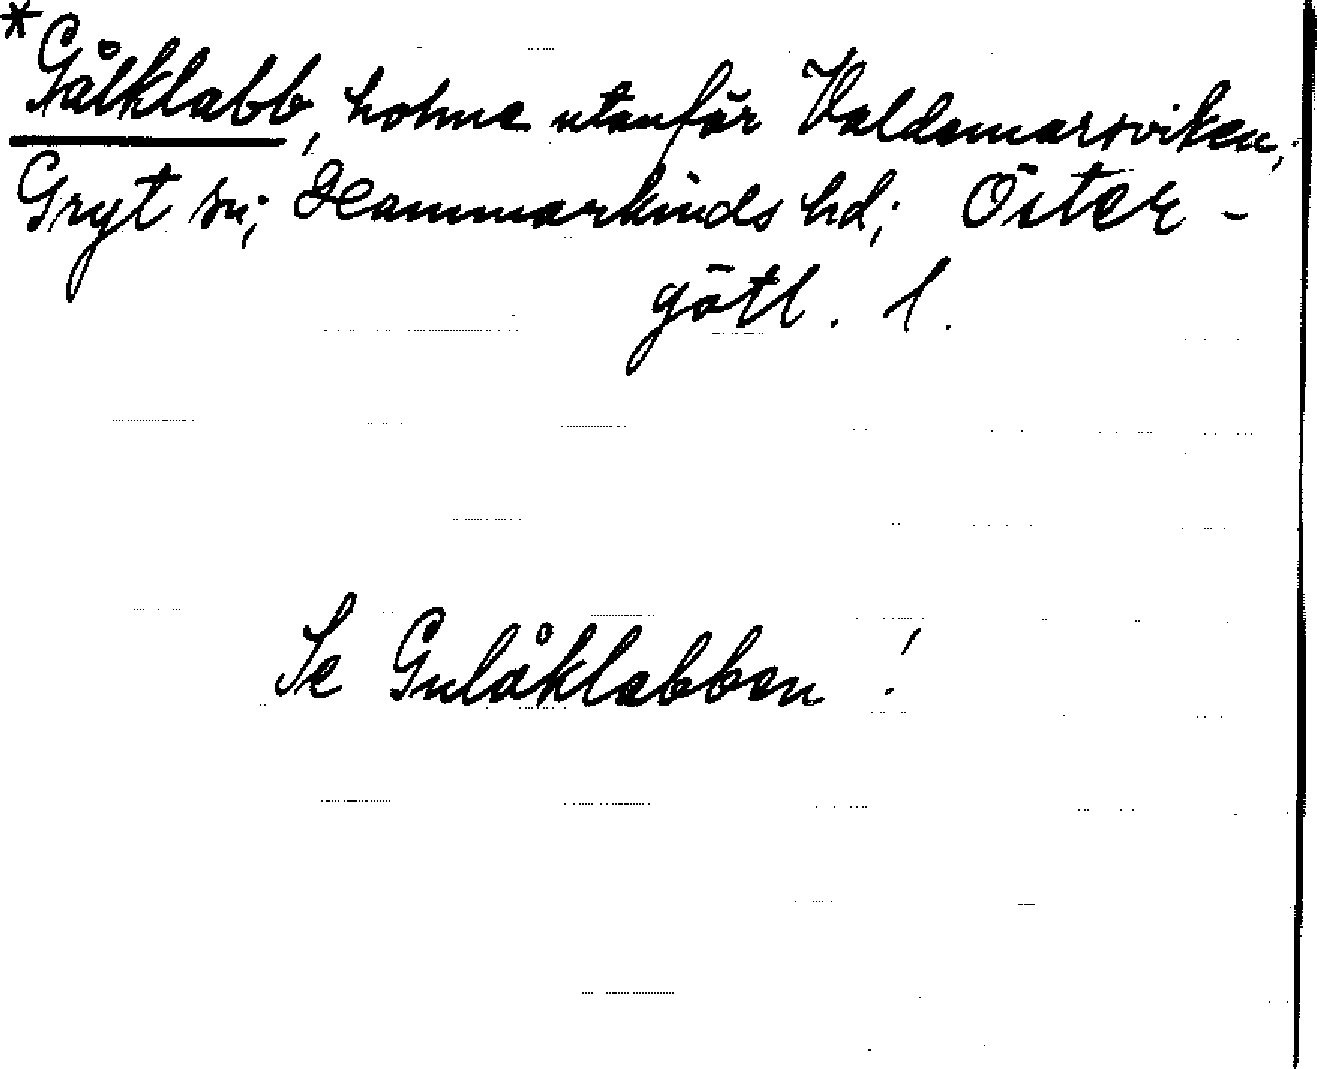 *Gålklabb, holme utanför Valdemarsviken,
Gryt sn; Hammarkinds hd; Öster-
götl. l.
Se Gulåklabben!